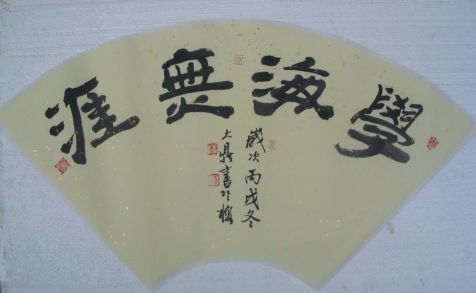 學海無涯
歲次丙戌冬
大鼎書於